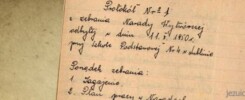 Protokół Nr 1
z zebrania Narady Wytwórczej
odbytej w dniu 11. I. 1950 r.
przy Szkole Podstawowej Nr 4 w Lublinie
Porządek zebrania:
1. Zagajenie.
2. Plan pracy